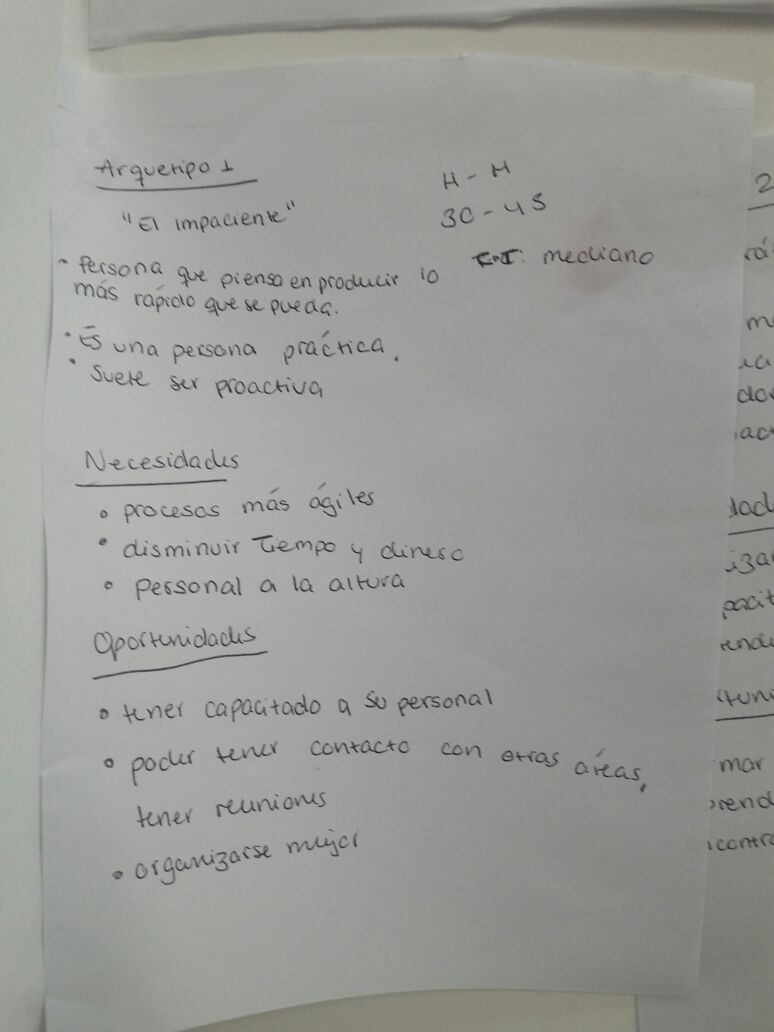 Arquetipo 1
"El impaciente"
H - M
30 - 45
• Persona que piensa en producir lo
más rápido que se pueda.
: mediano
• Es una persona práctica.
• Suele ser proactiva
Necesidades
• procesos más ágiles
• disminuir tiempo y dinero
• personal a la altura
Oportunidades
• tener capacitado a su personal
• poder tener contacto con otras áreas,
tener reuniones
• organizarse mejor
2